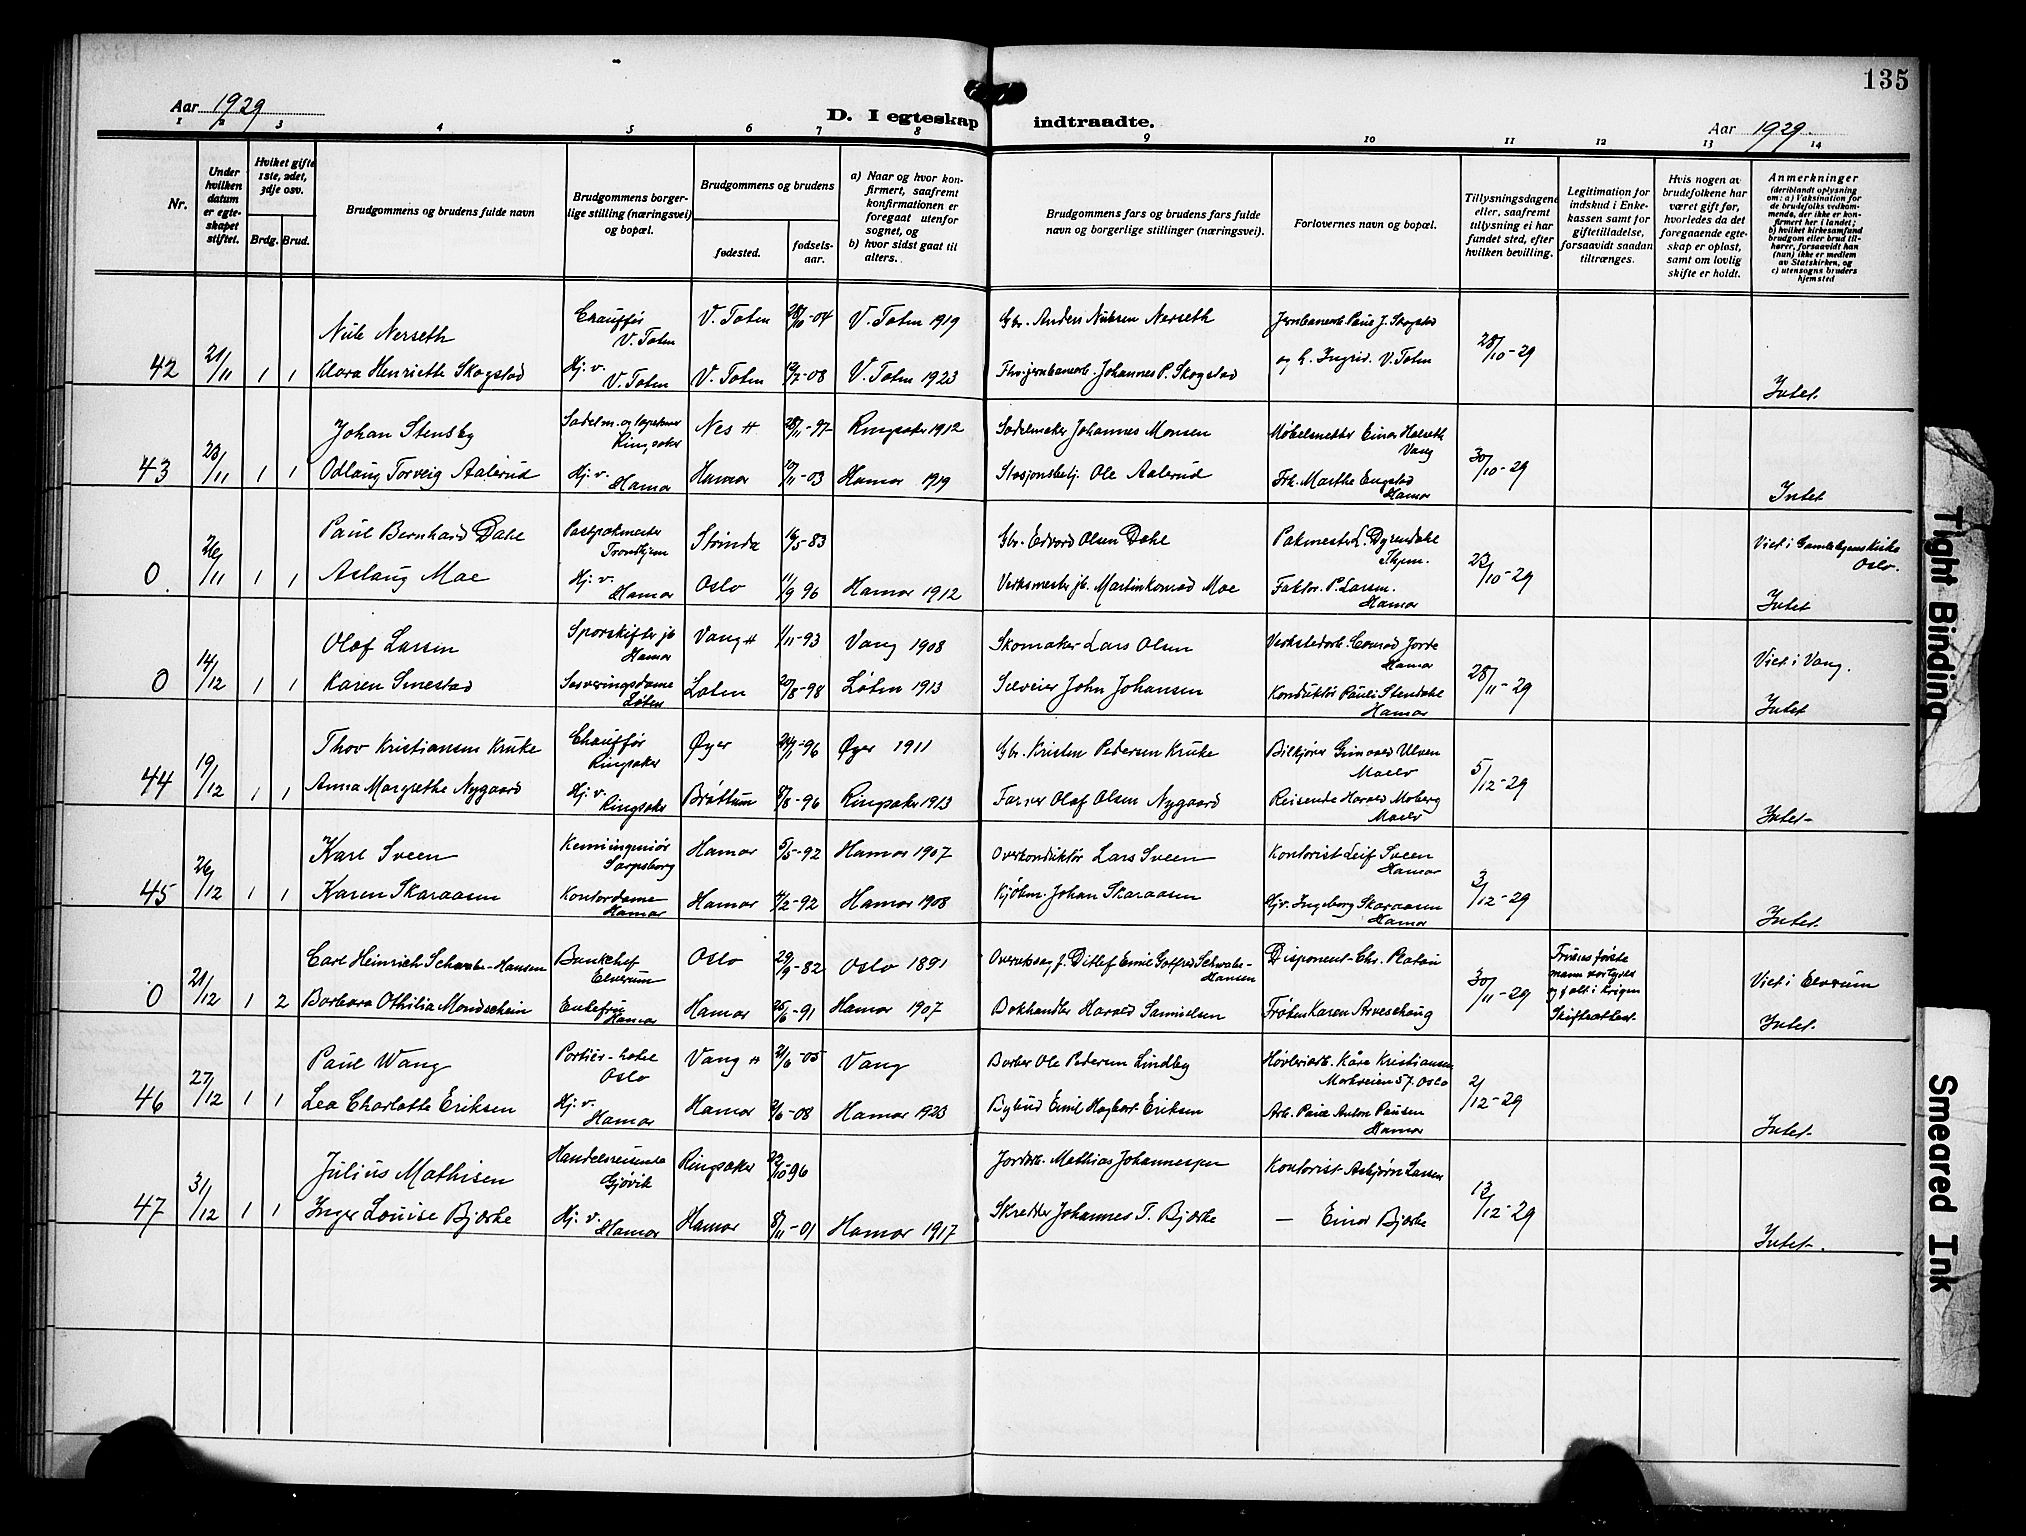 135
Aar 1929
D. I egteskap indtraadte.
Aar 1929.
1 2 3 4 5 6 7 8 9 10 11 12 13 14
Nr.
Under hvilken datum er egteskapet stiftet.
Hvilket gifte 1ste, 2det, 3dje osv.
Brdg. Brud.
Brudgommens og brudens fulde navn
Brudgommens borgerlige stilling (næringsvei) og bopæl.
Brudgommens og brudens
fødested.
fødselsaar.
a) Naar og hvor konfirmert, saafremt konfirmationen er foregaat utenfor sognet, og
b) hvor sidst gaat til alters.
Brudgommens fars og brudens fars fulde navn og borgerlige stillinger (næringsvei).
Forlovernes navn og bopæl.
Tillysningsdagene eller, saafremt tillysning ei har fundet sted, efter hvilken bevilling.
Legitimation for indskud i Enkekassen samt for giftetilladelse, forsaavidt saadan tiltrænges.
Hvis nogen av brudefolkene har været gift før, hvorledes da det foregaaende egteskap er opløst, samt om lovlig skifte er holdt.
Anmerkninger
(deriblandt oplysning om: a) Vaksination for de brudefolks vedkommende, der ikke er konfirmert her i landet; b) hvilket kirkesamfund brudgom eller brud tilhører, forsaavidt han (hun) ikke er medlem av Statskirken, og c) utensogns bruders hjemsted
Chauffør V. Toten V. Toten 28/10-04 V. Toten 1919 Gbr. Anders Nilsen Nerseth Jernbanearb. Paul J. Skogstad
Nils Nerseth
42 21/11 1 1 Clara Henriette Skogstad Hj. v. V. Toten V. Toten 12/7-08 V. Toten 1923 Fhv. jernbanearb. Johannes P. Skogstad og h. Ingrid. V. Toten 28/10-29 Intet.
Johan Stensby Ringsaker Nes H 28/11-97 Ringsaker 1912 Sadelmaker Johannes Monsen Møbelsnekker Einar Halseth Vang
43 23/11 1 1 Odlaug Torveig Aalerud Hj. v. Hamar Hamar 20/11-03 Hamar 1919 Stasjonsbetj. Ole Aalerud Frk. Marthe Engstad Hamar 30/10-29 Intet
Paul Bernhard Dahl Postpakmester Trondhjem Strinda 16/5-83 Gbr. Edvard Olsen Dahl Pakmester L. Dyrendahl Thjem. Viet i Gamlebyens Kirke Oslo.
0. 26/11 1 1 Aslaug Moe Hj. v. Hamar Oslo 11/9 96 Hamar 1912 Verksmester jb. Martin Konrad Moe Faktor. P. Larsen. Hamar 23/10-29 Intet
Olaf Larsen Sporskifter jb Hamar Vang H 1/11-93 Vang 1908 Skomaker Lars Olsen Verkstedarb. Conrad Jorde Hamar Viet i Vang.
0 14/12 1 1 Karen Smestad Serveringsdame Løten Løten 20/8-98 Løten 1913 Selveier John Johansen Konduktør Pauli Stendahl Hamar 28/11-29 Intet
Thov Kristiansen Kruke Chauffør Ringsaker Øyer 24/1-96 Øyer 1911 Gbr. Kristen Pedersen Kruke Bilkjører Gunvald Ulven Moelv
44 19/12 1 1 Anna Margrethe Nygaard Hj. v. Ringsaker Brøttum 8-96 Ringsaker 1913 Farver Olaf Olsen Nygaard Reisende Harald Moberg Moelv 5/12-29 Intet
Karl Sveen Kemiingeniør Sarpsborg Hamar 5/5-92 Hamar 1907 Overkonduktør Lars Sveen Kontorist Leif Sveen Hamar
45 26/12 1 1 Karen Skaraasen Kontordame Hamar Hamar 2-92 Hamar 1908 Kjøbm. Johan Skaraasen Hjv. Ingeborg Skaraasen Hamar 3/12-29 Intet.
Carl Heinrich Schwabe-Hansen Bankchef Elverum Oslo 29/9-82 Oslo 1891 Overretssag f. Ditlef Emil Gotfred Schwabe-Hansen Disponent Chr. Platou Fruens første mann var tysker og falt i krigen Skifteattest. Viet i Elverum
0 21/12 1 2 Barbara Othilia Mondschein Enkefru Hamar Hamar 25/6-91 Hamar 1907 Bokhandler Harald Samuelsen Frøken Karen Arveschoug 30/11-29 Intet.
Paul Wang Portier-hotel Oslo Vang H 21/6-05 Vang Barber Ole Pedersen Lindby Høvleriarb. Kåre Kristiansen Markveien 57. Oslo
46 27/12 1 1 Lea Charlotte Eriksen Hj. v. Hamar Hamar 2/6-08 Hamar 1923 Bybud Emil Hagbart Eriksen Arb. Paul Anton Paulsen Hamar 2/12-29 Intet
Julius Mathisen Handelsreisende Gjøvik Ringsaker 22/10 96 Jordarb. Mathias Johannessen Kontorist Asbjørn Larsen
47 31/12 1 1 Inger Louise Bjørke Hj. v. Hamar Hamar 8/11-01 Hamar 1917 Skredder Johannes T. Bjørke — Einar Bjørke 13/12-29 Intet.
Tight Binding
Smeared Ink